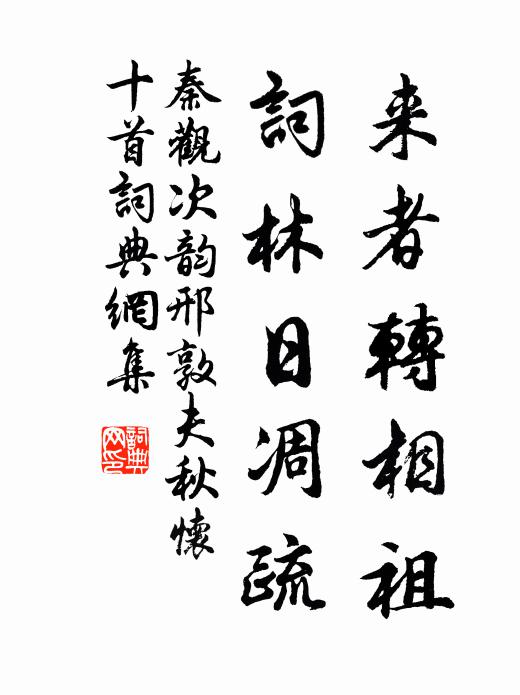 来者轉相祖
詞林日凋疏
秦觀次韵邢敦夫秋懷
十首詞典網集
詞典
网印